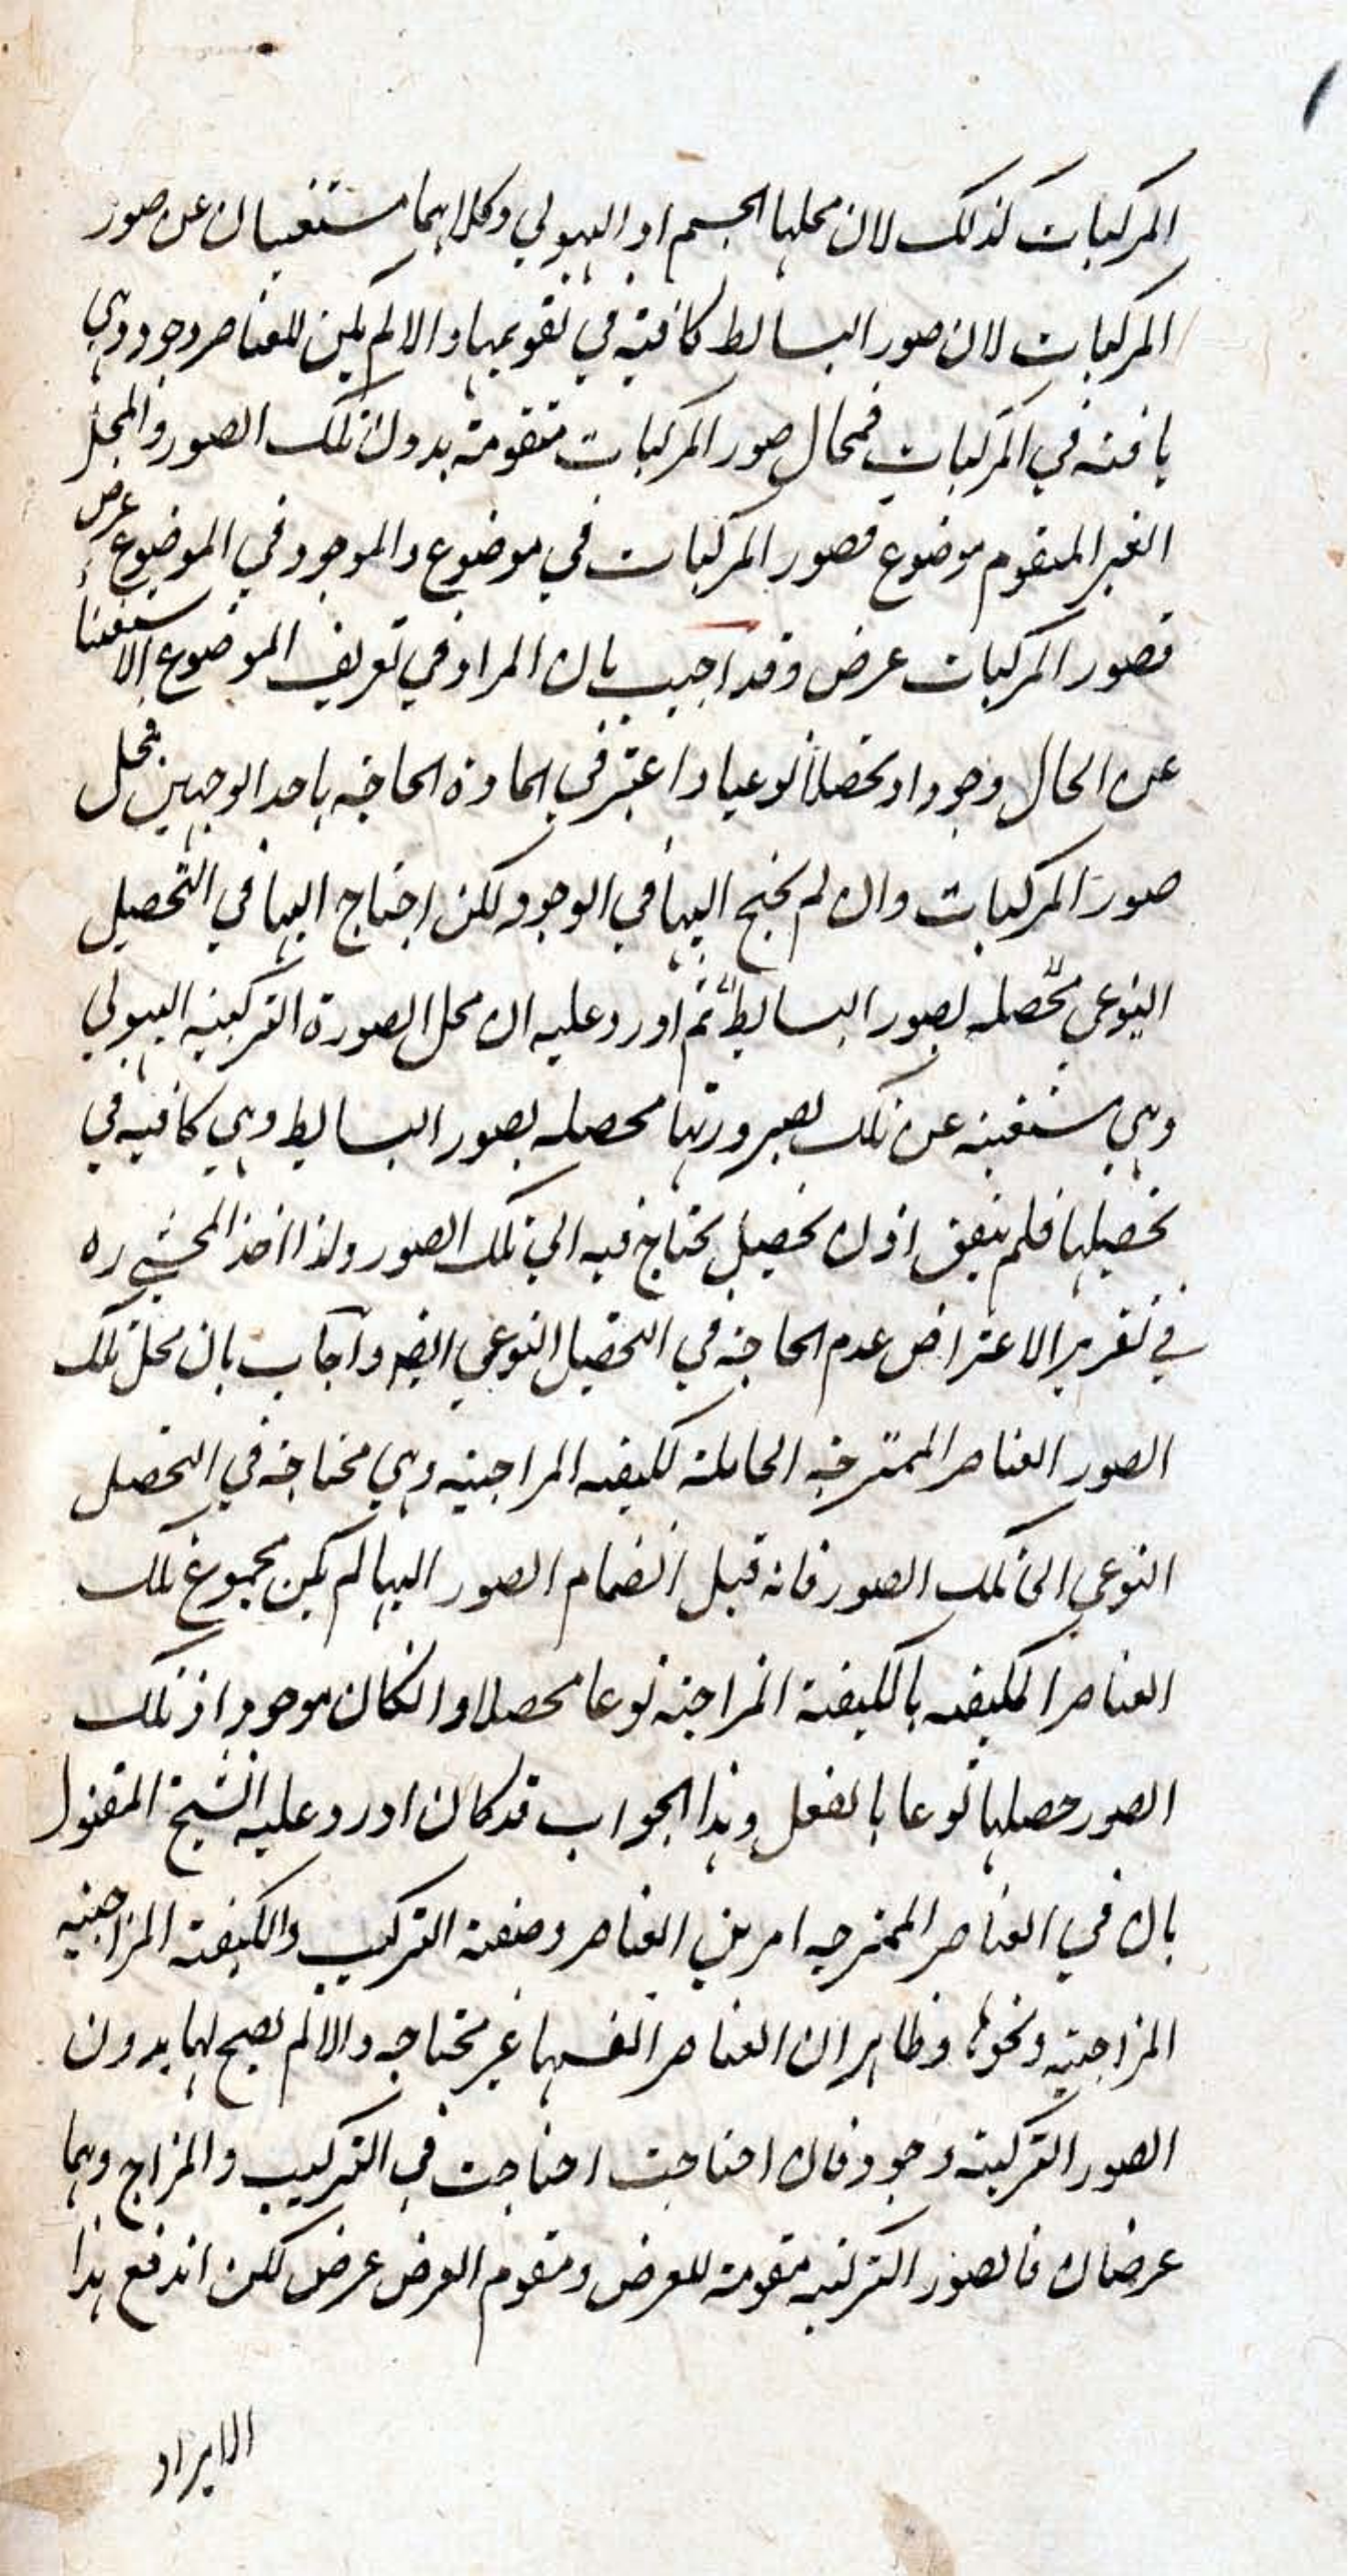 المركبات كذلك لان محلها الجسم او الهيولي وكلاهما مستغنيان عن صور
المركبات لان صور البسائط كافية في تقويمها والا لم يكن للعناصر وجود وهي
باقية في المركبات فمحال صور المركبات متقومة بدون تلك الصور والمحل
الغير المتقوم موضوع فصور المركبات في موضوع والموجود في الموضوع عرض
فصور المركبات عرض وقد اجيب بان المراد في تعريف الموضوع الاستغناء
عن الحال وجودا وتحصلا نوعيا واعتبر في المادة الحاجة باحد الوجهين فمحل
صور المركبات وان لم يحتج اليها في الوجود لكن احتاج اليها في التحصيل
النوعي محصلة بصور البسايط ثم اورد عليه ان محل الصورة التركيبية الهيولي
وهي مستغنية عن تلك لصيرورتها محصلة بصور البسايط وهي كافية في
تحصيلها فلم يبق اذن تحصيل يحتاج فيه الي تلك الصور ولذا اخذ المحشي ره
في تقرير الاعتراض عدم الحاجة في التحصيل النوعي ايضا واجاب بان محل تلك
الصور العناصر الممتزجة الحاملة للكيفية المزاجية وهي محتاجة في التحصل
النوعي الى تلك الصور فانه قبل انضمام الصور اليها لم يكن مجموع تلك
العناصر المكيفه بالكيفية المزاجية نوعا محصلا وانكان موجودا وتلك
الصور حصلها نوعا بالفعل وهذا الجواب قد كان اورد عليه الشيخ المقتول
بان في العناصر الممتزجه امرين العناصر وصفة التركيب والكيفية المزاجية
المزاجية ونحوها وظاهر ان العناصر انفسها غير محتاجه والا لم يصح لها بدون
الصور التركيبية وجود فان احتاجت احتاجت في التركيب والمزاج وهما
عرضان فالصور التركيبية مقومة للعرض ومقوم العرض عرض لكن اندفع هذا
الايراد